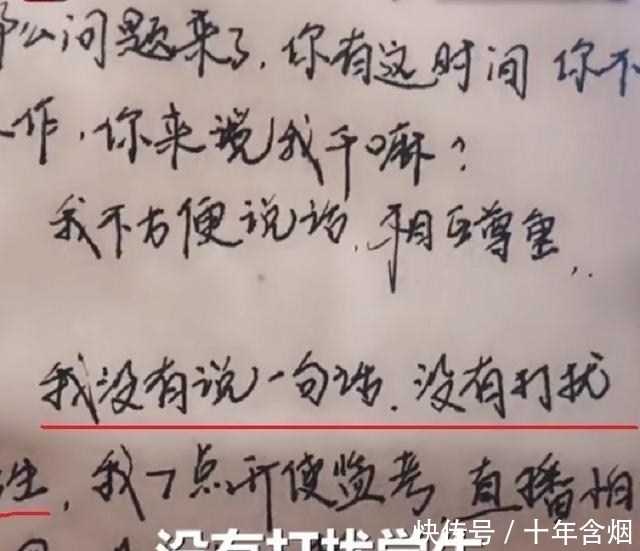 么问题来了，你有这时间 你不
工作，你来说我干嘛？
我不方便说话，相互尊重，
我没有说一句话，没有打扰
学生，我7点开使监考，直播怕
没有打扰学生
快传号 / 十年含烟